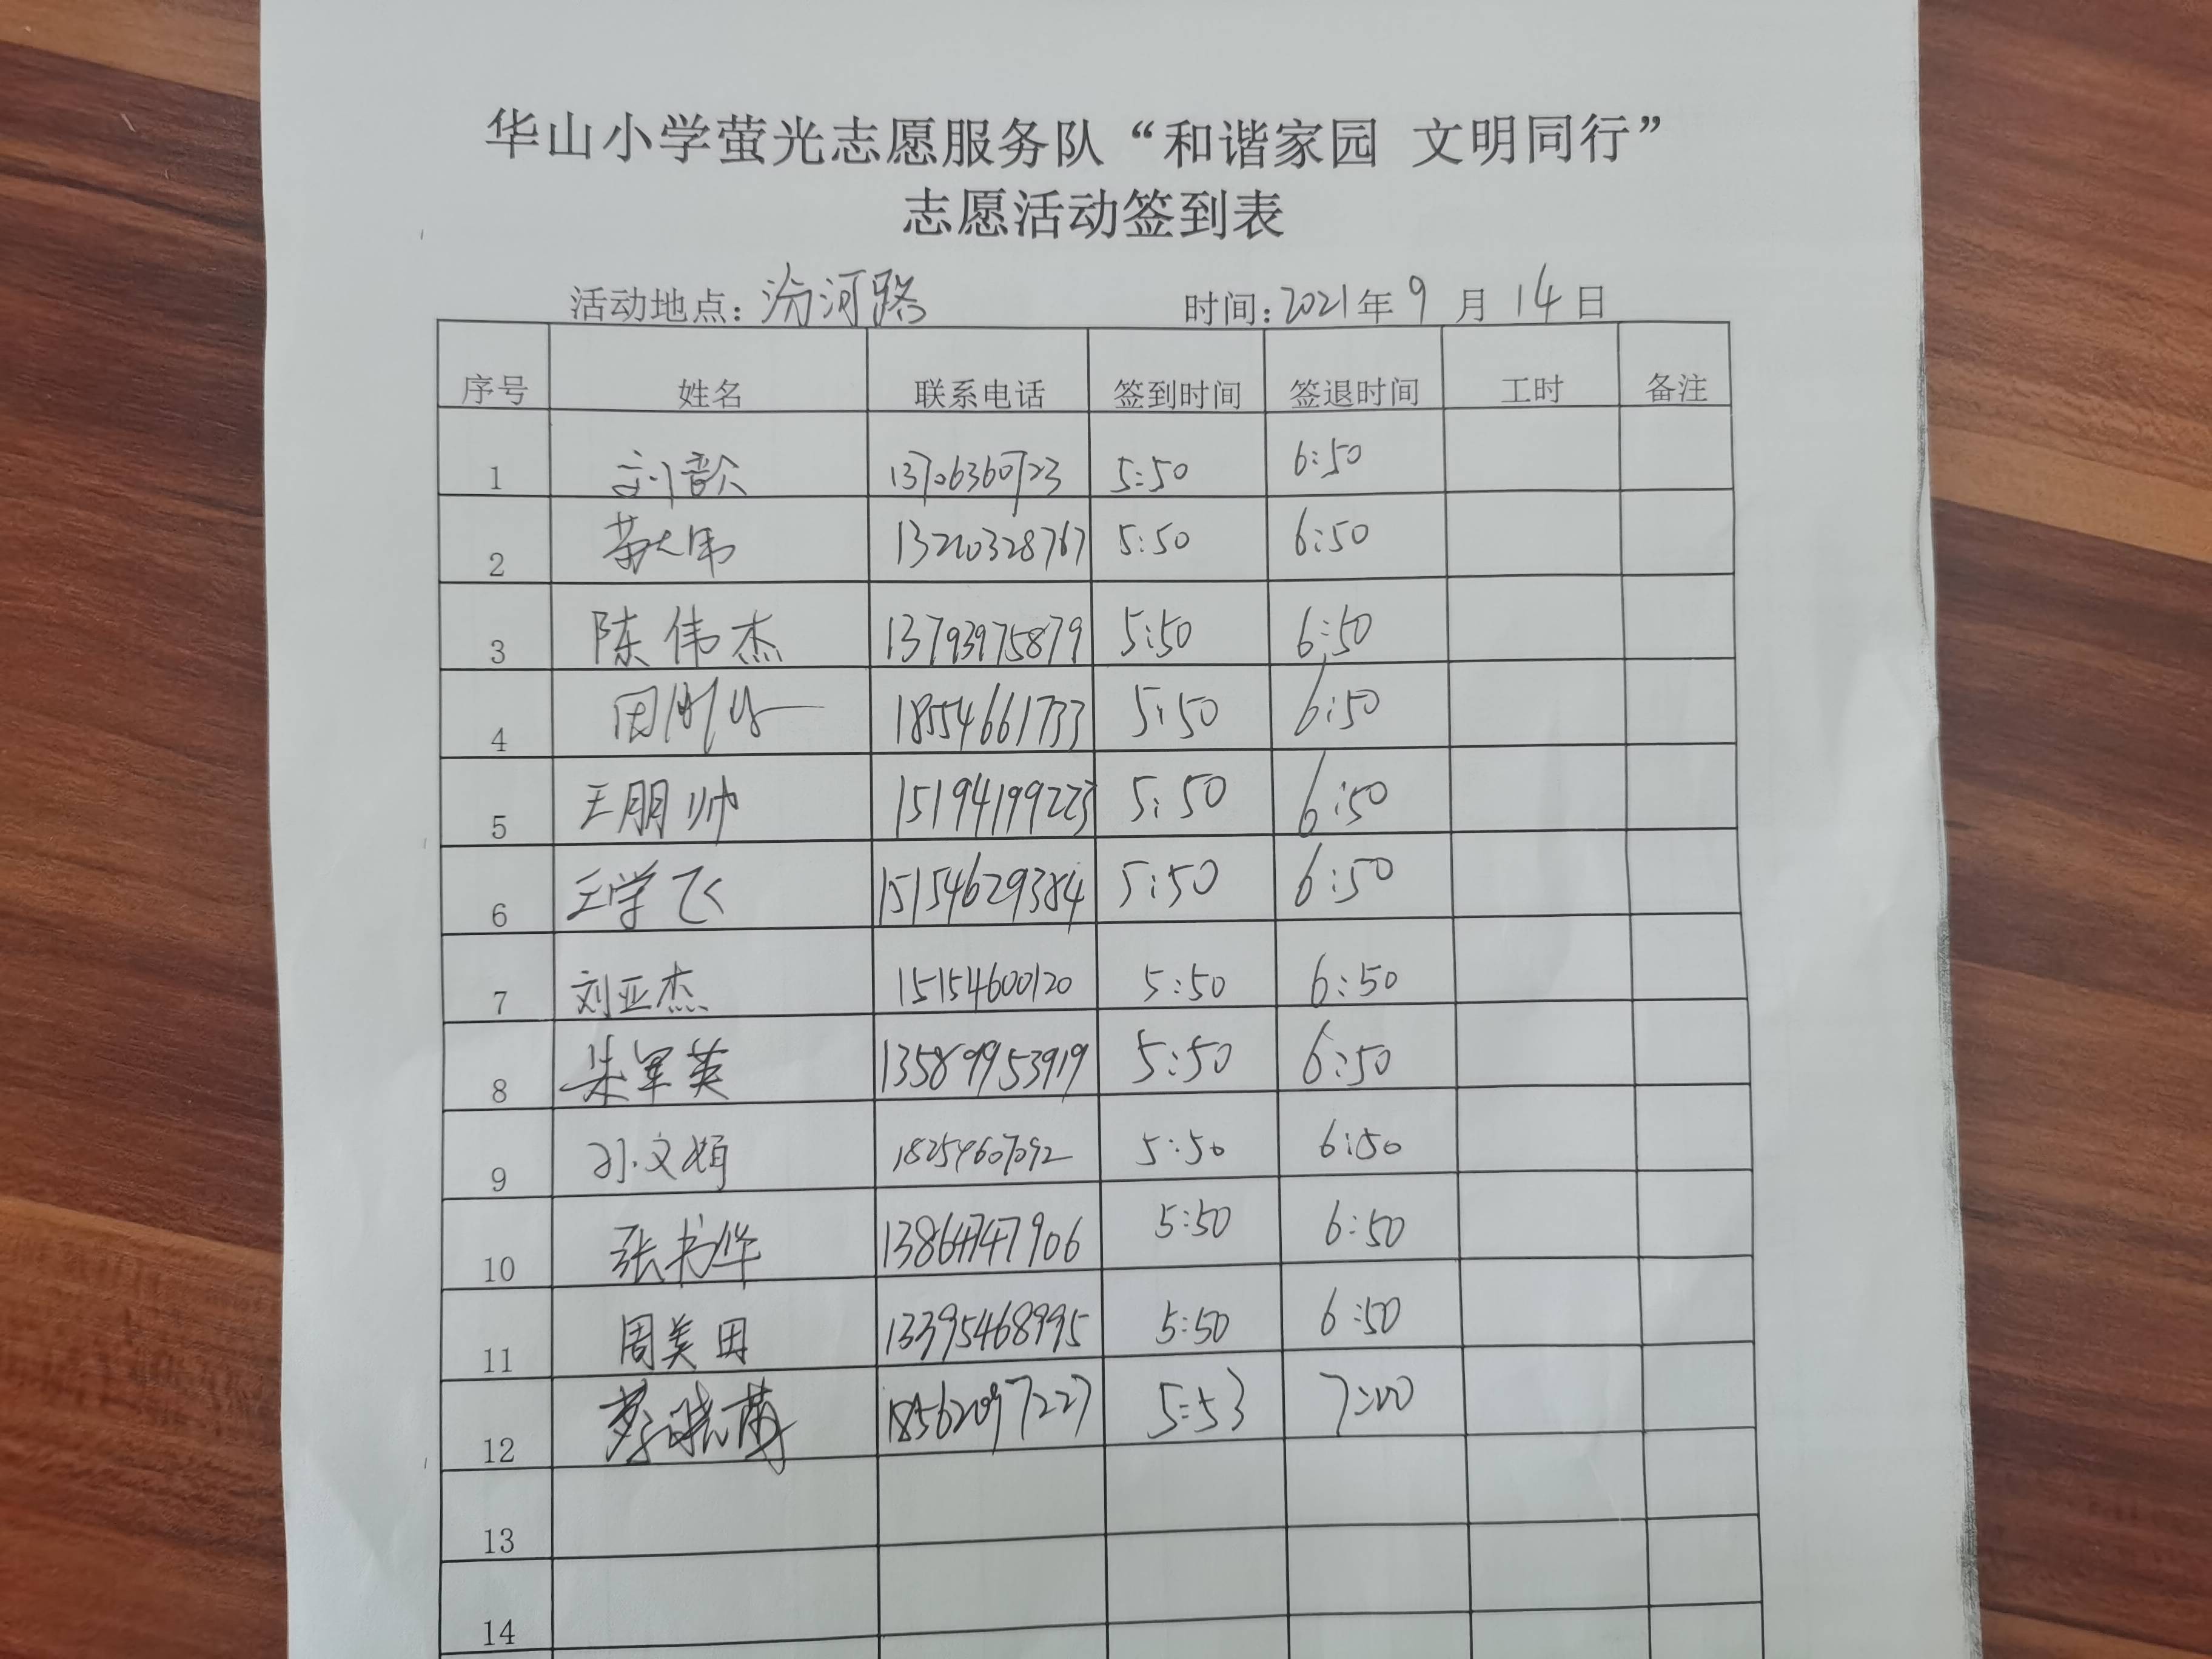 华山小学萤光志愿服务队“和谐家园 文明同行”
志愿活动签到表
活动地点：汾河路 时间：2021年9月14日
序号 姓名 联系电话 签到时间 签退时间 工时 备注
1 刘歆 13706360723 5:50 6:50
2 苗大伟 13210328767 5:50 6:50
3 陈伟杰 13793975879 5:50 6:50
4 18554661733 5:50 6:50
5 王朋帅 15194199223 5:50 6:50
6 王学飞 15154629384 5:50 6:50
7 刘亚杰 15154600120 5:50 6:50
8 朱军英 13589953919 5:50 6:50
9 孙文娟 18254607092 5:50 6:50
10 张书华 13864747906 5:50 6:50
11 周美田 13395468995 5:50 6:50
12 18562097227 5:53 7:00
13
14